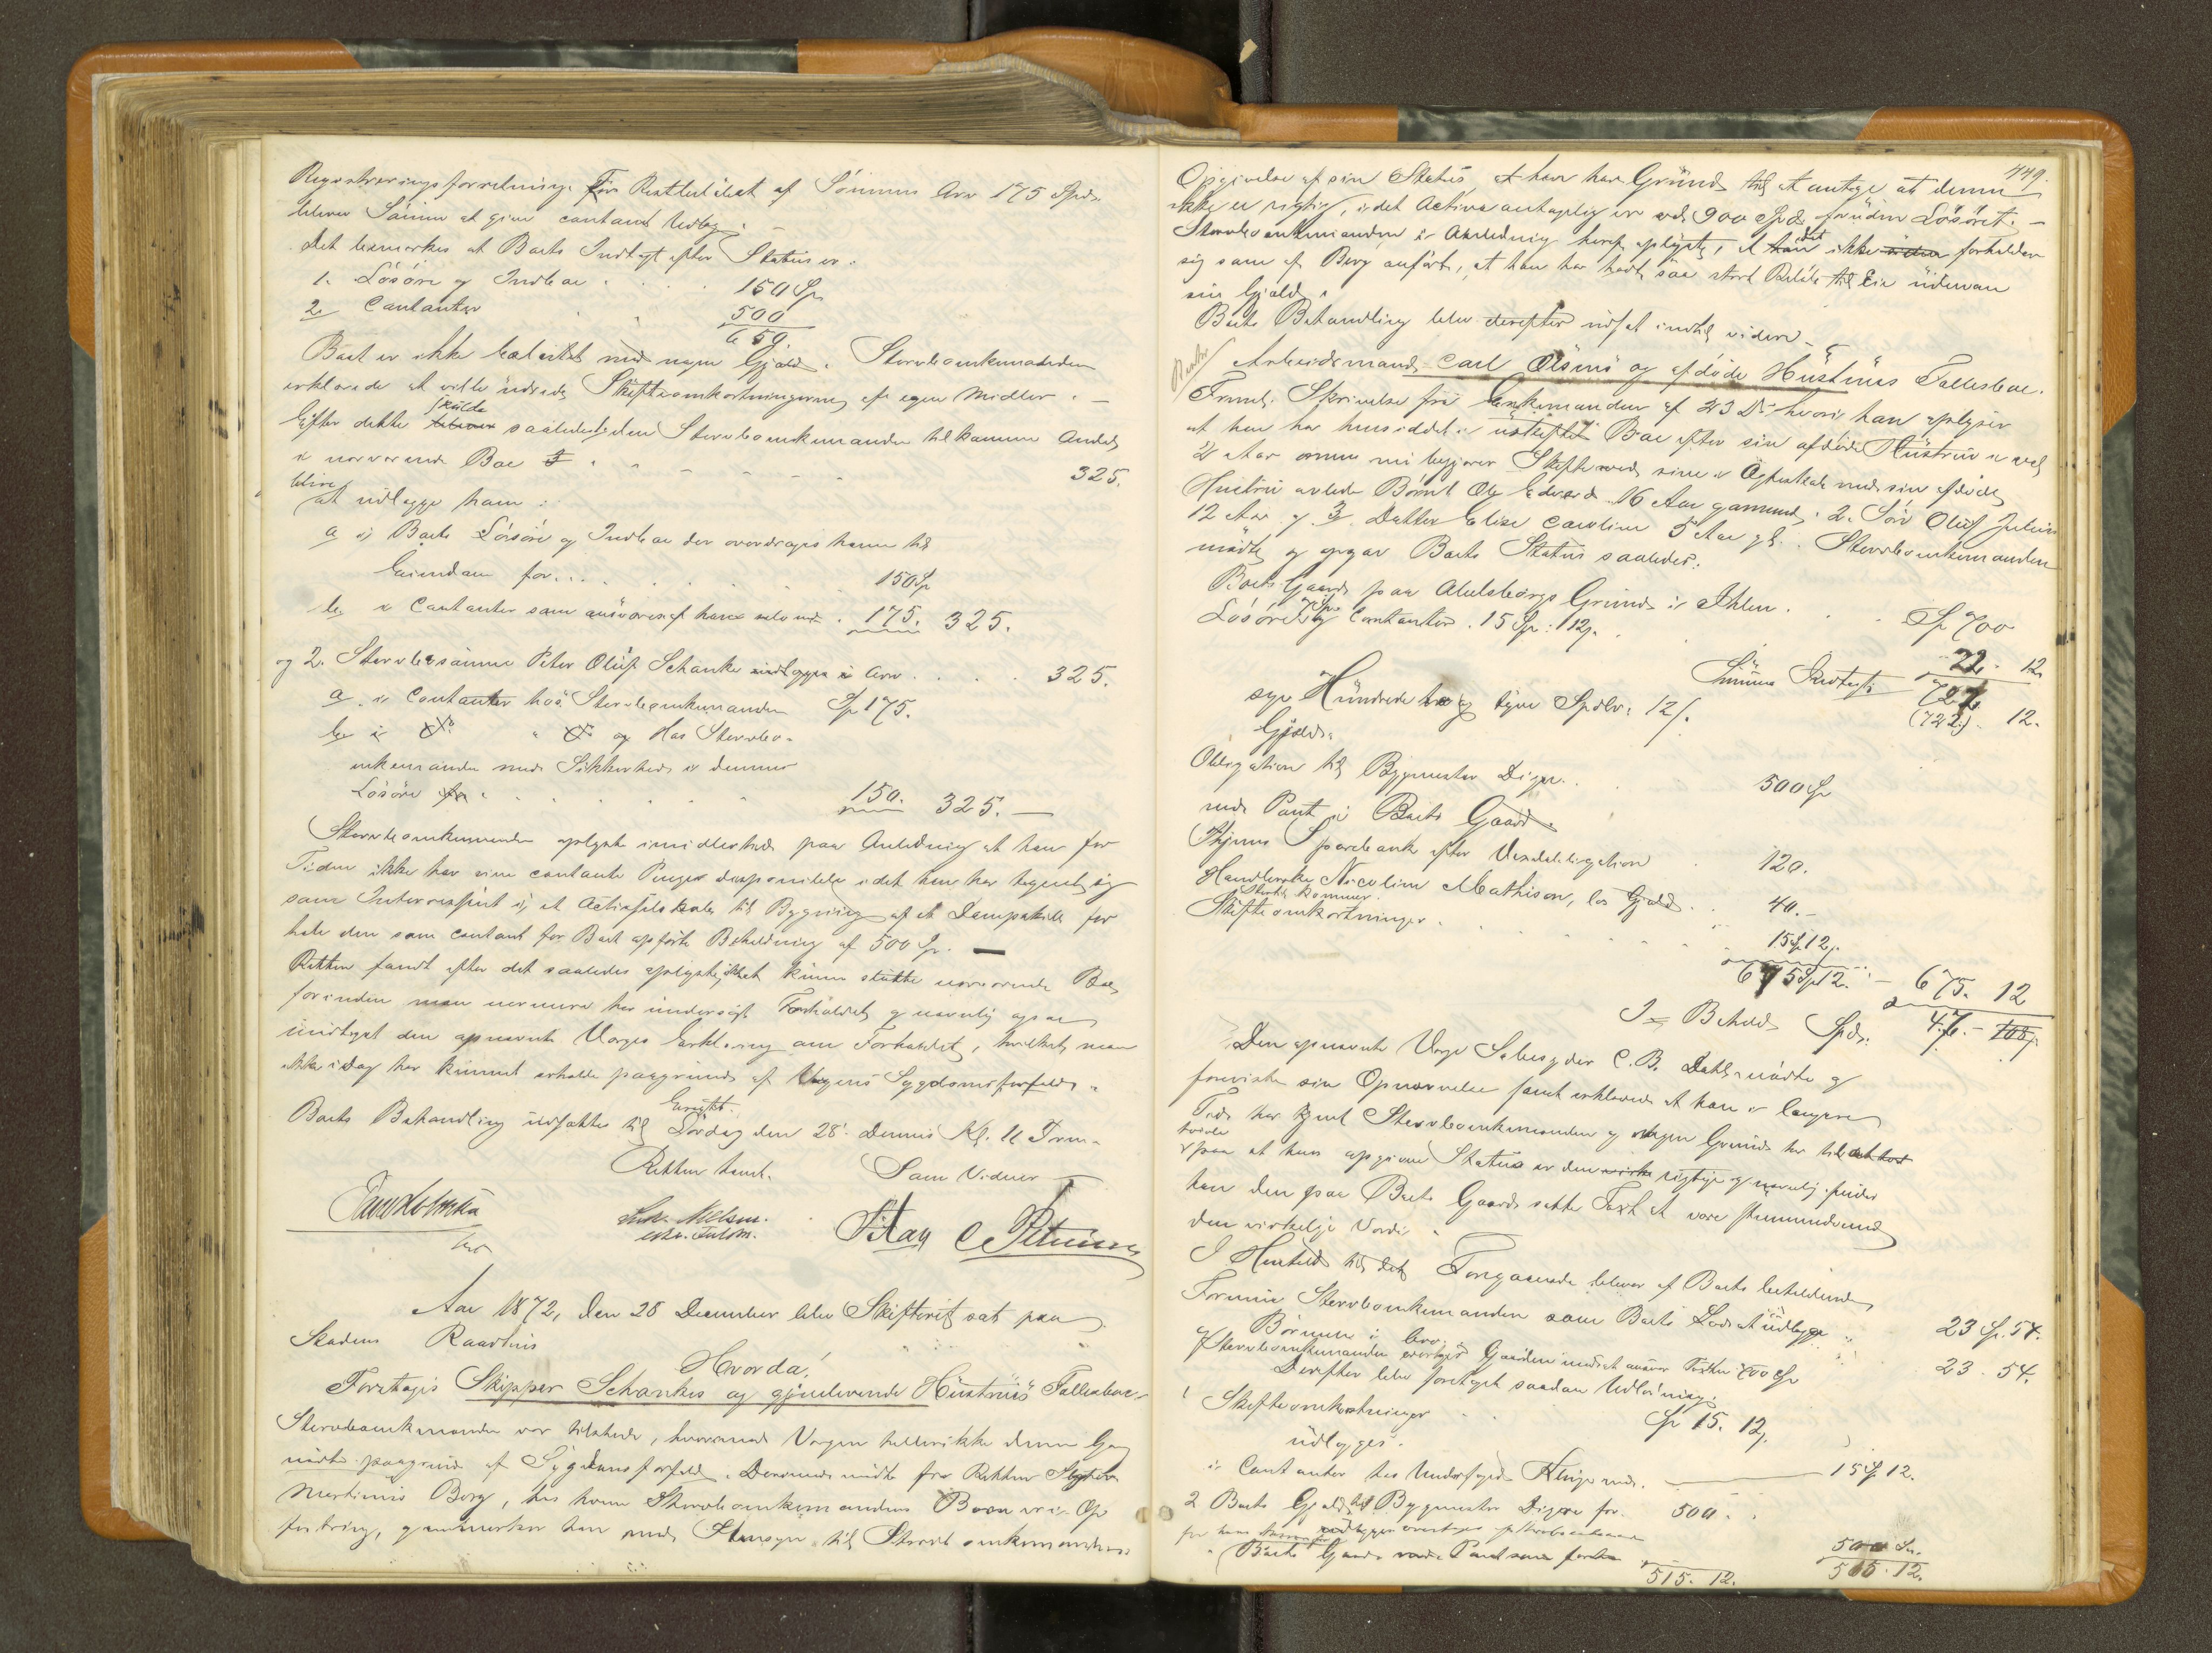 Registreringsforretning. For Restbeløbet af Sønnens Arv 175 Spd.
blever Sønnen at give contant Udlæg.
Det bemærkes at Boets Indtægt efter Status er:
1. Løsøre og Indboe . . . . 150 Sp
2. Contanter . . 500
650.
Boet er ikke belastet med nogen Gjæld. Stervboenkemanden
erklærede at ville udrede Skifteomkostningerne af egne Midler. –
Efter dette skulde saaledes den Stervboenkemanden tilkomne Andel
i nærværende Boe . . . . 325.
blive
at udlægge ham:
a i Boets Løsøre og Indboe der overdrages ham til
Eiendom for . . . . 150 Sp
b. i Contanter som ansvares af ham selv med . 175. 325.
og 2. Stervbesønnen Peter Oluf Schanke udlægges i Arv . . . . 325.
a. i Contanter hos Stervboenkemanden Sp 175.
b. i do " do og Hos Stervbo-
enkemanden mod Sikkerhed i dennes
Løsøre . . . . 150. 325. –
Stervboenkemanden oplyste imidlertid paa Anledning at han for
Tiden ikke har sine contante Penge disponible idet han har tegnet sig
som Interessent i et Actieselskab til Bygning af et Dampskib for
hele den som contant for Boet opførte Beholdning af 500 Sp. –
Retten fandt efter det saaledes oplyste, ikke at kunne slutte nærværende Boe,
forinden man nærmere har undersøgt Forholdet og navnlig ogsaa
modtaget den opnævnte Værges Erklæring om Forholdet, hvilket man
ikke i Dag har kunnet erholde paagrund af Værgens Sygdomsforfald.
Boets Behandling udsattes til Lørdag den 28. Dennes Kl. 11 Form.
Retten hævet.
Som Vidner
C Petersen
Aar 1872, den 28 December blev Skifteret sat paa
Stadens Raadhuus
Hvorda!
Foretoges Skipper Schankes og gjenlevende Hustrues Fællesboe.
Stervboenkemanden var tilstede, hvorimod Værgen heller ikke denne Gang
mødte paagrund af Sygdomsforfald. Derimod mødte for Retten
Martinus Berg, hos hvem Stervboenkemandens Børn er i Op-
fostring, og anmærker han med Hensyn til Stervboenkemandens
749.
Opgivelse af sin Status, at han har Grund til at antage at denne
ikke er rigtig, idet Activa antagelig er ved 900 Spd. foruden Løsøret. –
Stervboenkemanden i Anledning heraf oplyste, at det ikke forholder
sig som af Berg anført, at han har havt saa stort Beløb til Eie udenom
sin Gjæld.
Boets Behandling blev udsat indtil videre. –
Arbeidsmand Carl Olsens og afdøde Hustrues Fællesboe.
Freml. Skrivelse fra Enkemanden af 23 Ds. hvori han oplyser
at han har hensiddet i uskiftet Boe efter sin afdøde Hustrue i ved
2 Aar men nu begjærer Skifte med sine i Ægteskab med sin afdøde
Hustru avlede Børn 1. Ole Edvard 16 Aar gammel, 2. Søn Oluf Julius
12 Aar og 3. Datter Elise Caroline 5 Aar gl. . Stervboenkemanden
mødte og opgav Boets Status saaledes:
Boets Gaard paa Abelsborgs Grund i Ihlen . . . Sp 700
Løsøret og Contanter . 15 Sp: 12 s. . . 22 – 12
Summa 722 12.
syv Hundrede to og tyve Spdlr: 12 s.
Gjæld.
Obligation til Bygmester Digre . . 500 Sp
mod Pant i Boets Gaard.
Sparebank efter Vexelobligation . 120.
Handlerske Nicoline Mathison, løs Gjæld . . 40. –
Skifteomkostninger . . . . 15 Sp 12 s.
675 Sp 12. – 675. 12
I Behold Spd. 47. –
Den opnævnte Værge C. B. Dahl mødte og
foreviste sin Opnævnelse samt erklærede at han i længere
Tid har kjendt Stervboenkemanden og ingen Grund har til at
tvivle
paa at hans opgivne Status er den rigtige og navnlig finder
han den paa Boets Gaard satte Taxt at være stemmende med
den virkelige Værdi.
I Henhold til det Foregaaende blever af Boets beholdende
Formue Stervboenkemanden som Boets Lod at udlægge . 23 Sp. 54.
Børnene i Arv . . 23. 54.
Stervboenkemanden overtager Gaarden imod at ansvar Taxten 700 Sp
Derefter blev foretaget saadan Udlægning:
1 Skifteomkostninger Sp 15. 12 s.
udlægges.
i Contanter hos med. – 15 Sp 12.
2 Boets Gjæld til Bygmester Digre for . 500. .
Boets Gaard 500 Sp.
515. 12. 515. 12.